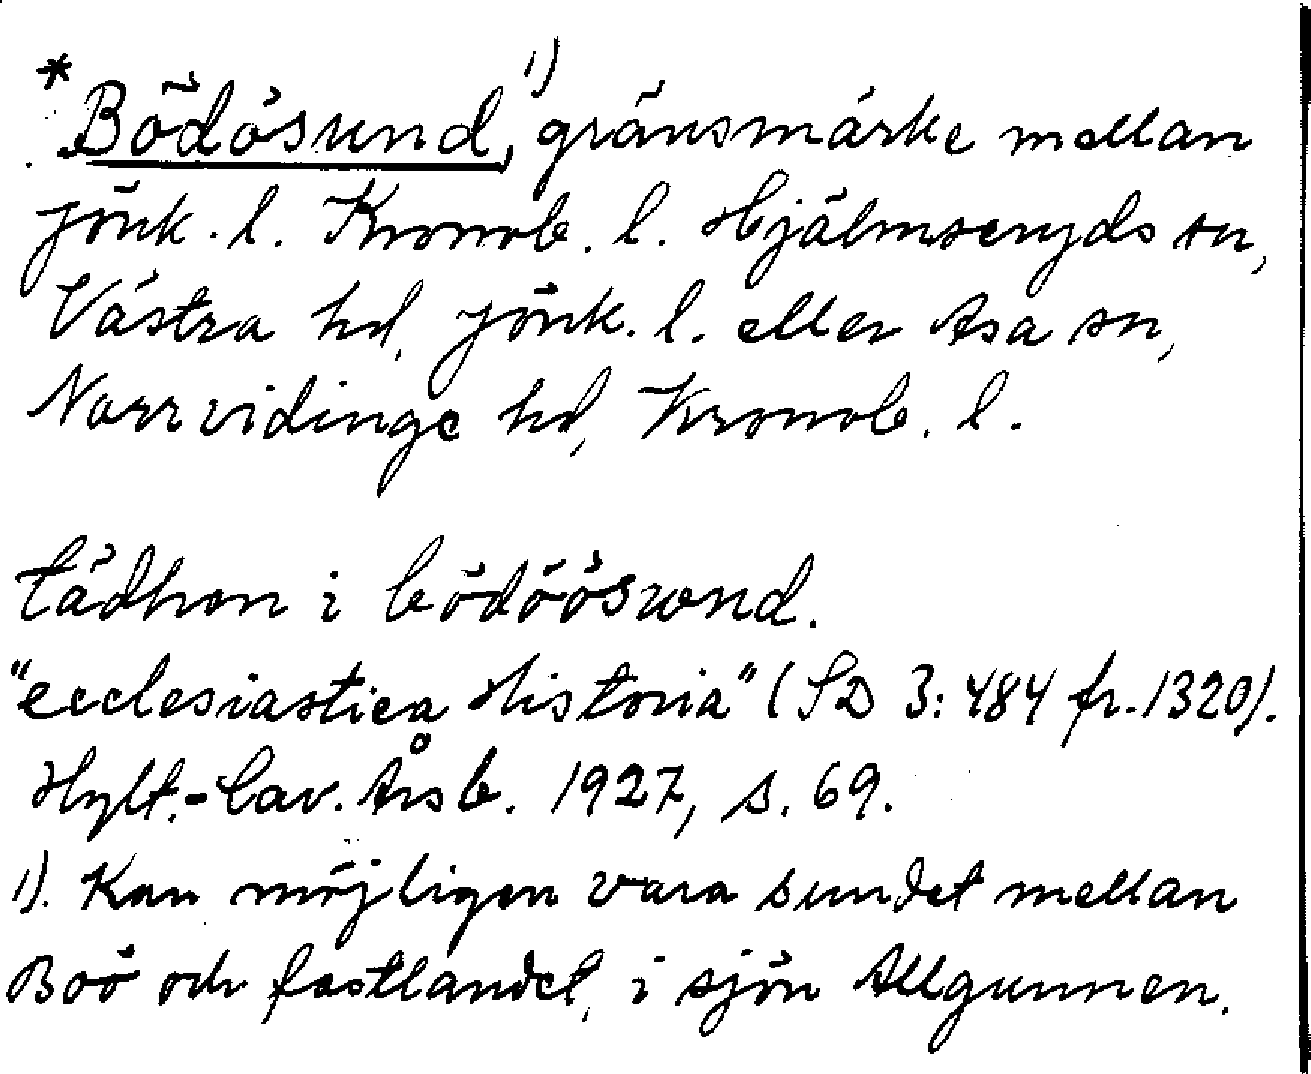 *Bödösund,¹⁾ gränsmärke mellan
Jönk. l. Kronob. l. Hjälmseryds sn,
Västra hd, Jönk. l. eller Asa sn,
Norrvidinge hd, Kronob. l.
tädhen i bödöösund.
"ecclesiastica Historia" (SD 3:484 fr. 1320).
Hylt.-Cav. Årsb. 1927, s. 69.
1). Kan möjligen vara sundet mellan
Boö och fastlandet, i sjön Allgunnen.